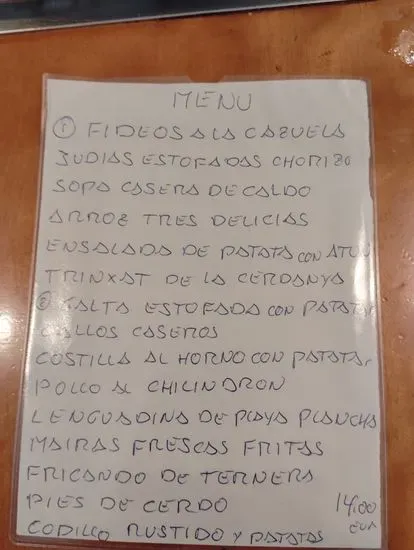 MENU
① FIDEOS A LA CAZUELA
JUDIAS ESTOFADAS CHORIZO
SOPA CASERA DE CALDO
ARROZ TRES DELICIAS
ENSALADA DE PATATA CON ATUN
TRINXAT DE LA CERDANYA
② GALTA ESTOFADA CON PATATAS
CALLOS CASEROS
COSTILLA AL HORNO CON PATATAS
POLLO AL CHILINDRON
LENGUADINA DE PLAYA PLANCHA
MAIRAS FRESCAS FRITAS
FRICANDO DE TERNERA
PIES DE CERDO 14,00
CODILLO RUSTIDO Y PATATAS EUR